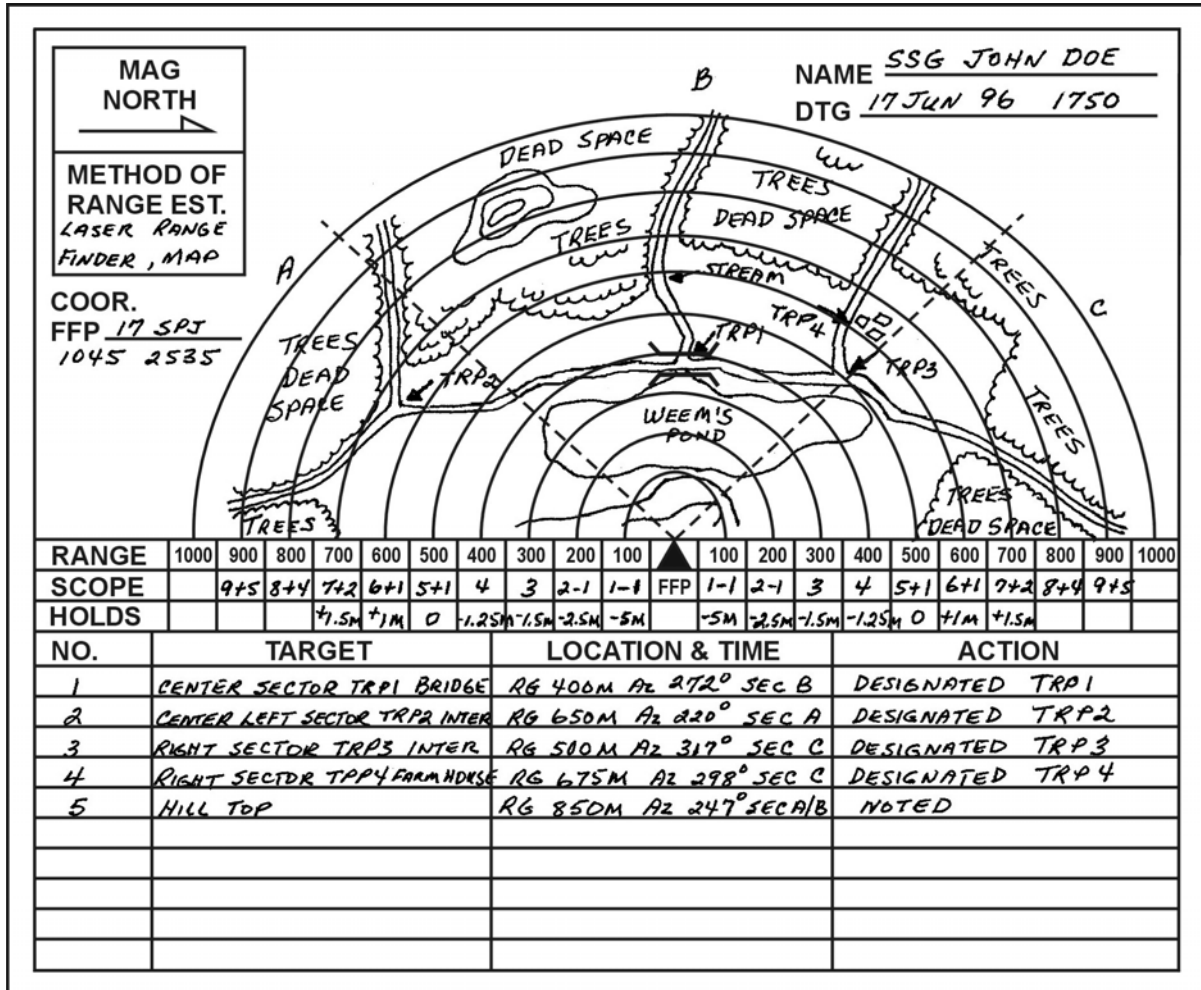 MAG
NORTH
METHOD OF
RANGE EST.
LASER RANGE
FINDER, MAP
COOR.
FFP 17 SPJ
1045 2535
NAME SSG JOHN DOE
DTG 17 JUN 96 1750
B
DEAD SPACE
TREES
DEAD SPACE
TREES
TREES
A
C
STREAM
TRP4
TRP1
TRP3
TREES
DEAD
SPACE
TRP2
TREES
WEEM'S
POND
TREES
TREES
DEAD SPACE
RANGE 1000 900 800 700 600 500 400 300 200 100 100 200 300 400 500 600 700 800 900 1000
SCOPE 9+5 8+4 7+2 6+1 5+1 4 3 2-1 1-1 FFP 1-1 2-1 3 4 5+1 6+1 7+2 8+4 9+5
HOLDS +1.5M +1M 0 -1.25M -1.5M -2.5M -5M -5M -2.5M -1.5M -1.25M 0 +1M +1.5M
NO. TARGET LOCATION & TIME ACTION
1 CENTER SECTOR TRP1 BRIDGE RG 400M AZ 272° SEC B DESIGNATED TRP1
2 CENTER LEFT SECTOR TRP2 INTER RG 650M AZ 220° SEC A DESIGNATED TRP2
3 RIGHT SECTOR TRP3 INTER RG 500M AZ 317° SEC C DESIGNATED TRP3
4 RIGHT SECTOR TPP4 FARM HOUSE RG 675M AZ 298° SEC C DESIGNATED TRP4
5 HILL TOP RG 850M AZ 247° SEC A/B NOTED